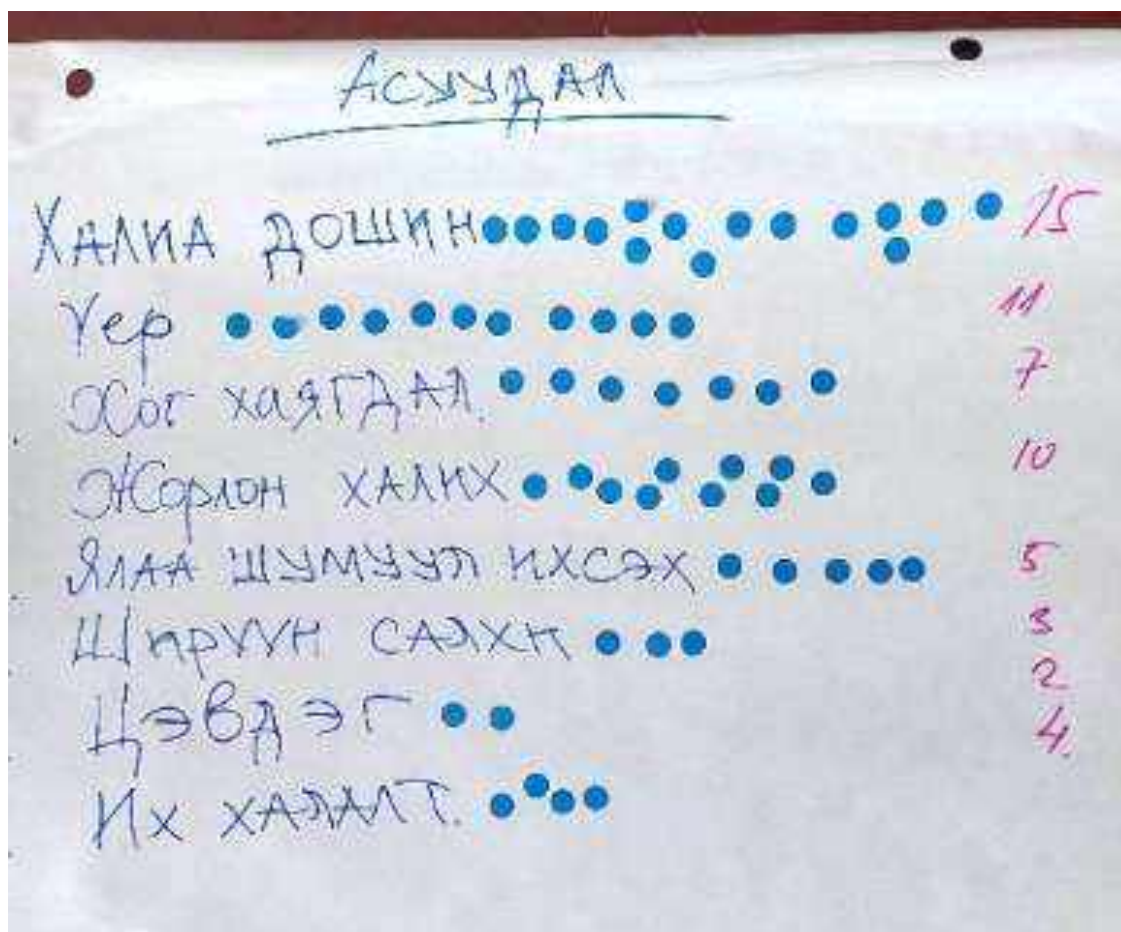 АСУУДАЛ
ХАЛИА ДОШИН 15
Үер 11
Хог хаягдАл. 7
Жорлон ХАЛИХ 10
ЯЛАА ШУМУУЛ ИХСЭХ 5
ШирҮҮН САЛХИ 3
ЦЭВДЭГ 2
Их ХАЯАЛТ. 4.